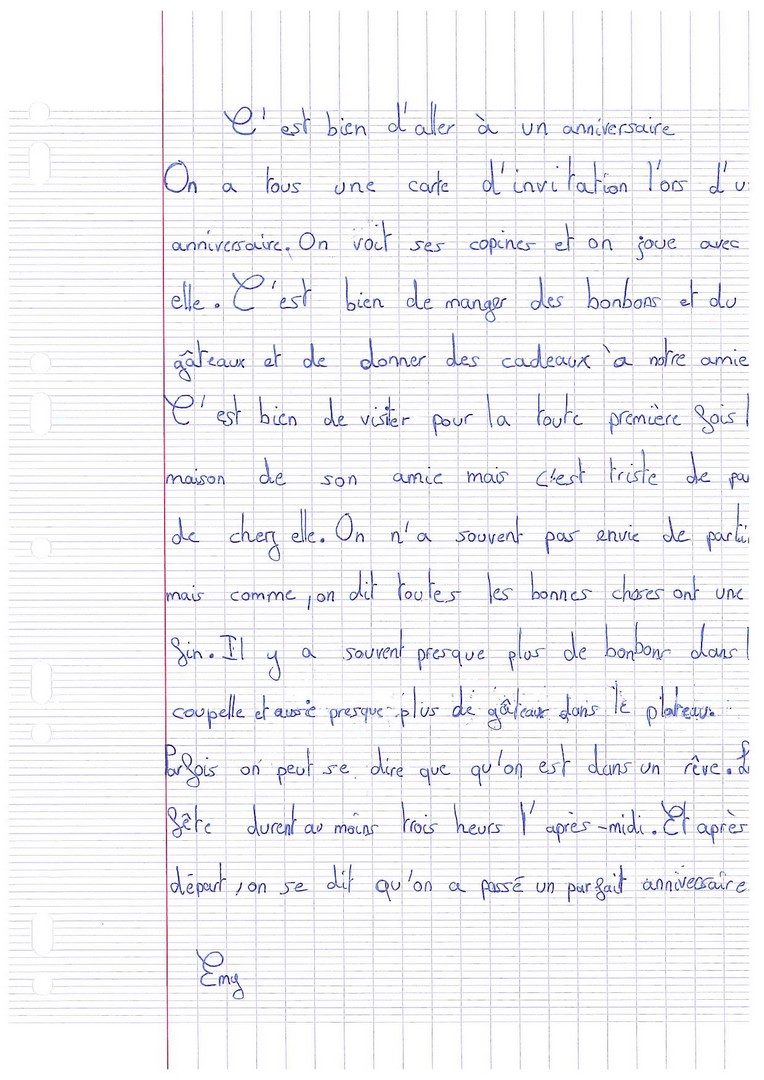 C'est bien d'aller à un anniversaire
On a tous une carte d'invitation l'ors d'u
anniversaire. On voit ses copines et on joue avec
elle. C'est bien de manger des bonbons et du
gâteaux et de donner des cadeaux à notre amie
C'est bien de visiter pour la toute première fois l
maison de son amie mais c'est triste de pa
de cherz elle. On n'a souvent pas envie de parti
mais comme, on dit toutes les bonnes choses ont une
fin. Il y a souvent presque plus de bonbons dans l
coupelle et aussie presque plus de gâteaux dans le plateau.
Parfois on peut se dire que qu'on est dans un rêve. L
fête durent au moins trois heurs l'après-midi. Et après
départ, on se dit qu'on a passé un parfait anniversaire
Emy